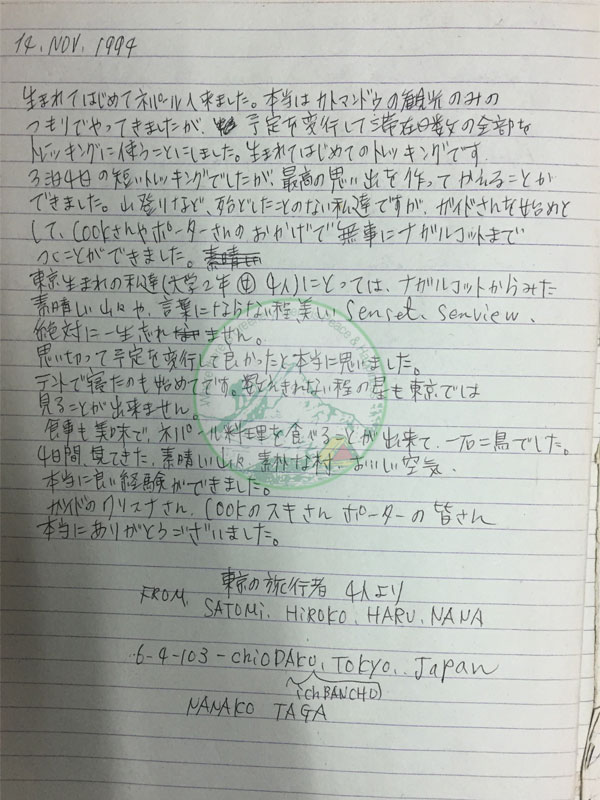 14. NOV. 1994
生まれてはじめてネパールへ来ました。本当はカトマンドウの観光のみの
つもりでやってきましたが、予定を変行して滞在日数の全部を
トレッキングに使うことにしました。生まれてはじめてのトレッキングです。
3泊4日の短いトレッキングでしたが、最高の思い出を作ってかえることが
できました。山登りなど、殆どしたことのない私達ですが、ガイドさんを始めと
して、COOKさんやポーターさんのおかげで無事にナガルコットまで
つくことができました。
東京生まれの私達(大学2年 4人)にとっては、ナガルコットからみた
素晴しい山々や、言葉にならない程美しい Senset、Senview、
絶対に一生忘れません。
思い切って予定を変行して良かったと本当に思いました。
テントで寝たのも始めてです。数えきれない程の星も東京では
見ることが出来ません。
食事も美味で、ネパール料理を食べることが出来て、一石二鳥でした。
4日間見てきた、素晴しい山々、素朴な村、おいしい空気、
本当に良い経験ができました。
ガイドのクリスナさん、COOKのスキさん ポーターの皆さん
本当にありがとうございました。
東京の旅行者 4人より
FROM. SATOMi. HiROKO. HARU. NANA
6-4-103-chiODAKU. TOKYO.. Japan
(ichBANCHO)
NANAKO TAGA